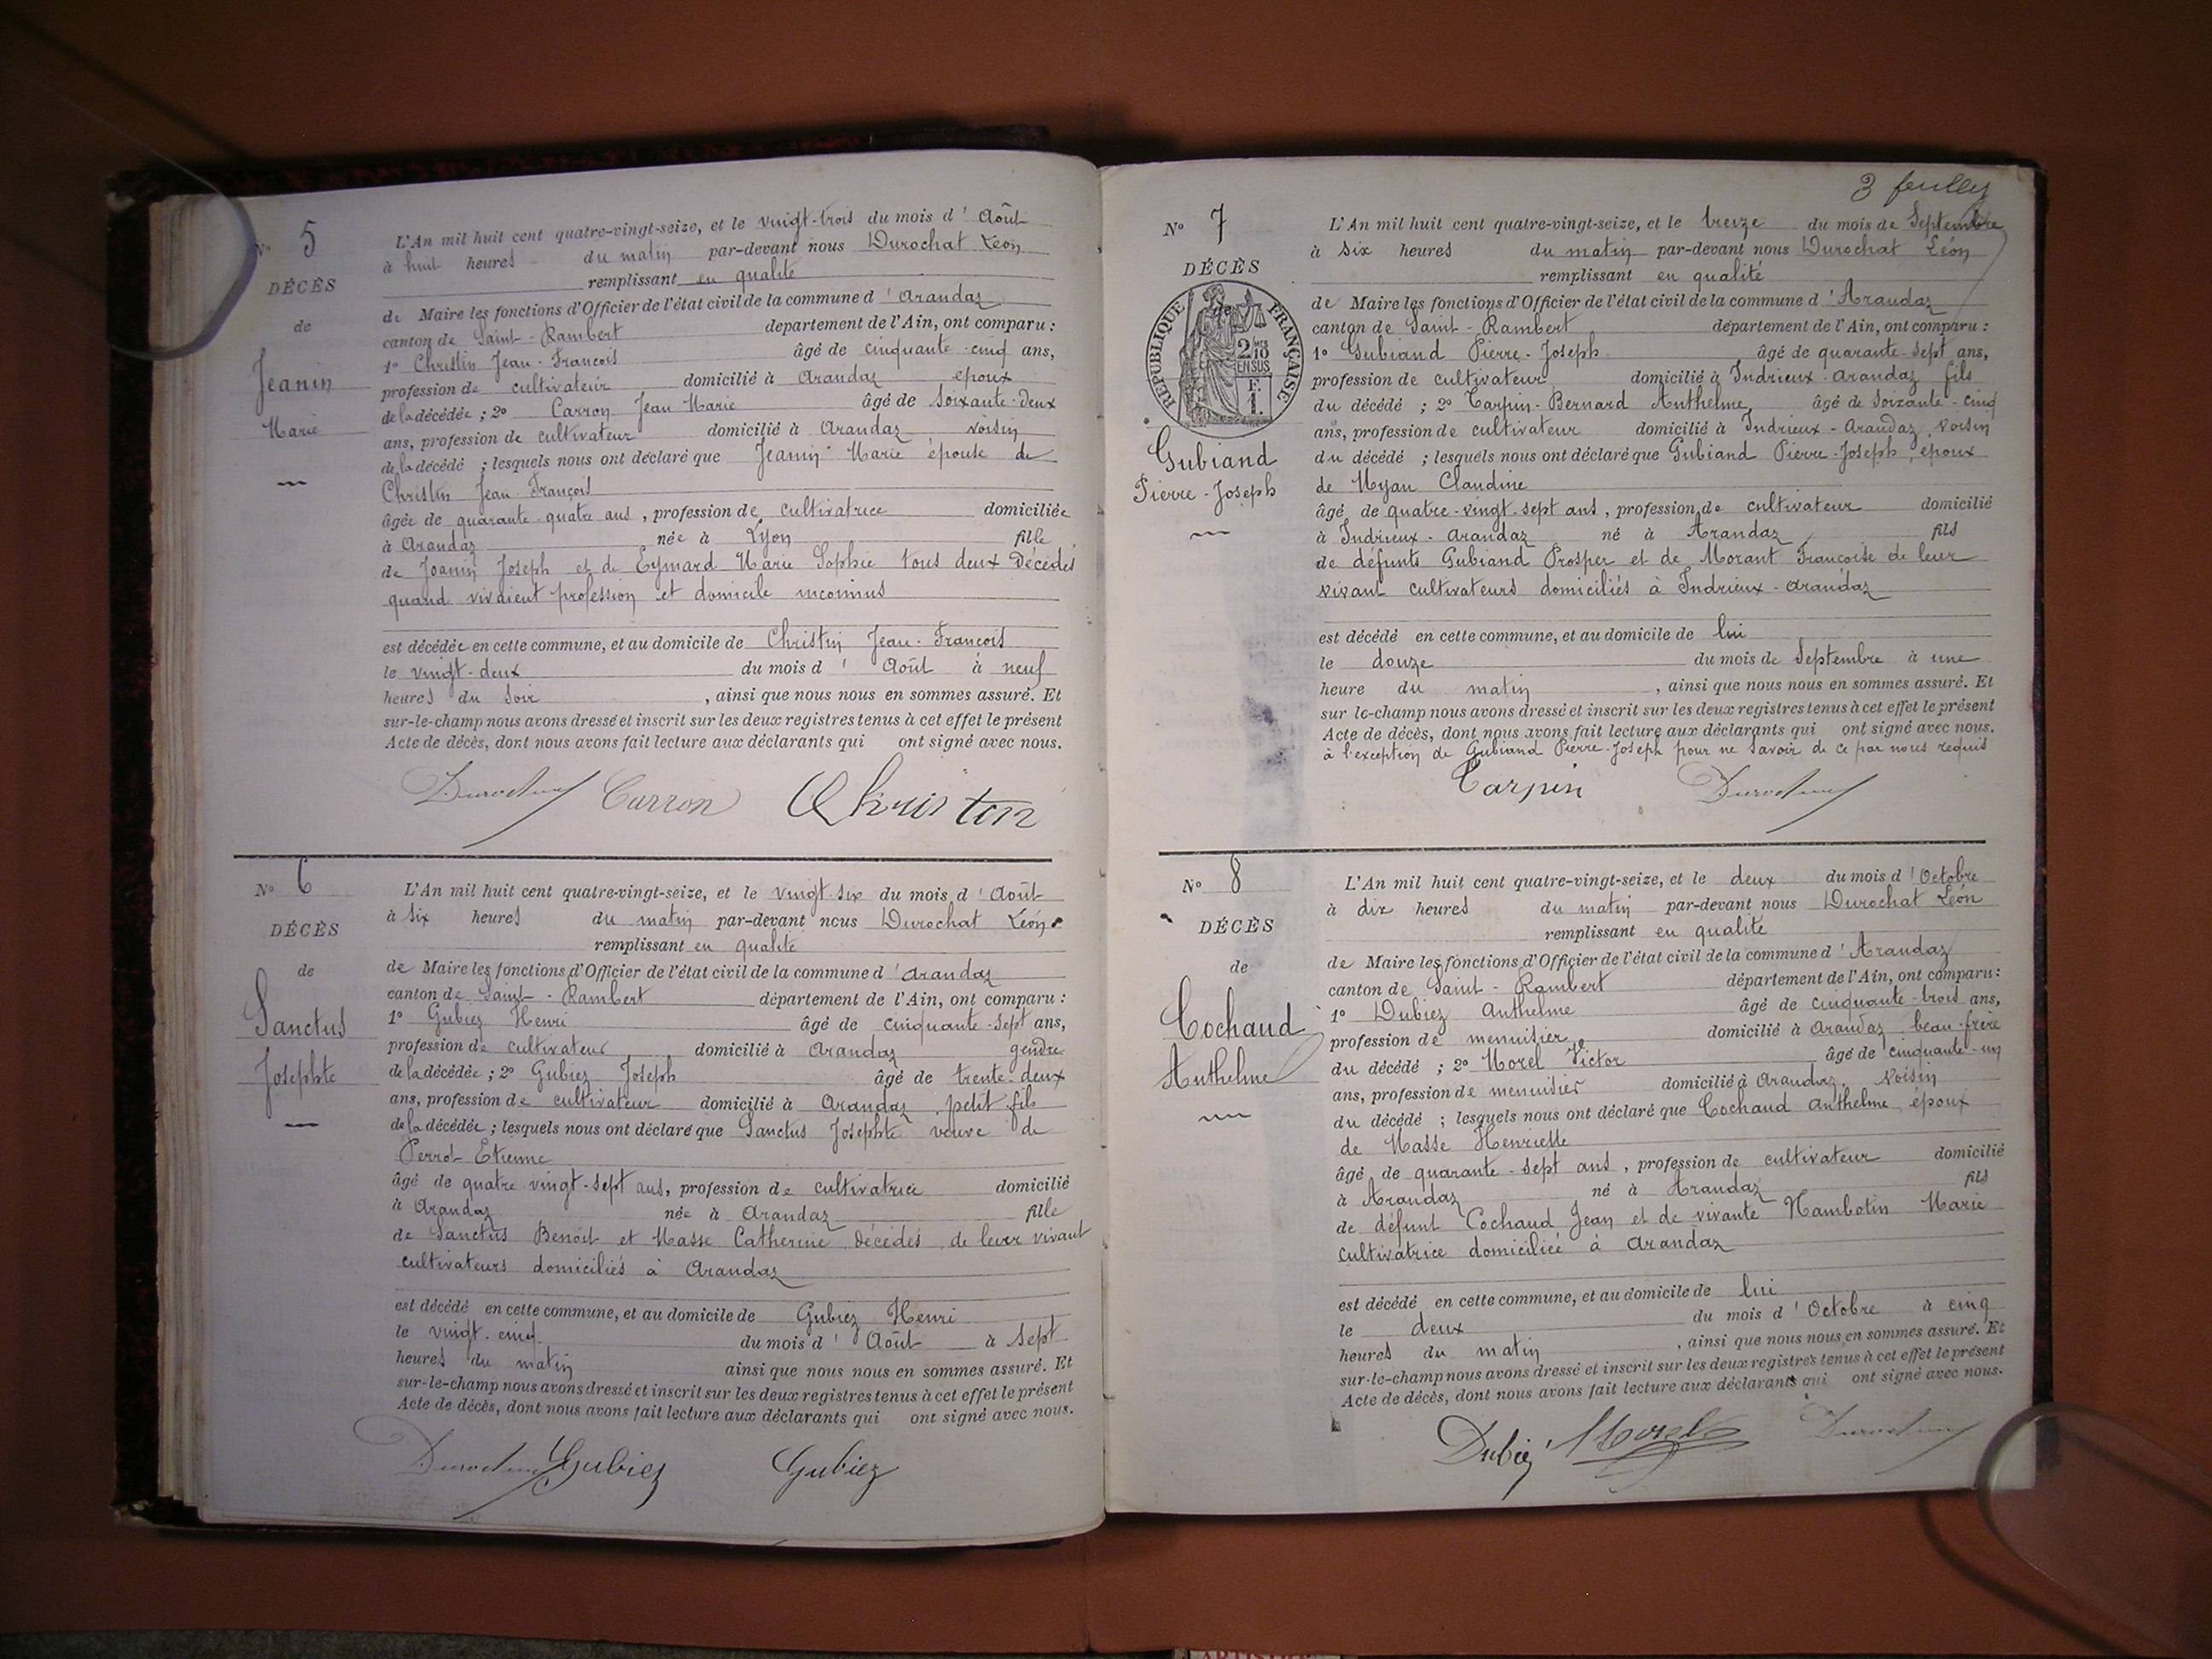 N° 5
DÉCÈS
de
Jeanin
Marie
L'An mil huit cent quatre-vingt-seize, et le vingt-trois du mois d'Août
à huit heures du matin par-devant nous Durochat Léon
remplissant en qualité
de Maire les fonctions d'Officier de l'état civil de la commune d'Arandaz
canton de Saint-Rambert département de l'Ain, ont comparu :
1° Christin Jean-François âgé de cinquante-cinq ans,
profession de cultivateur domicilié à Arandaz époux
de la décédée ; 2° Carron Jean Marie âgé de soixante-deux
ans, profession de cultivateur domicilié à Arandaz voisin
de la décédé ; lesquels nous ont déclaré que Jeanin Marie épouse de
Christin Jean-François
âgée de quarante quatre ans, profession de cultivatrice domiciliée
à Arandaz née à Lyon fille
de Joanin Joseph et de Eymard Marie Sophie tous deux décédés
quand vivaient profession et domicile inconnus
est décédée en cette commune, et au domicile de Christin Jean-François
le vingt-deux du mois d'Août à neuf
heures du soir, ainsi que nous nous en sommes assuré. Et
sur-le-champ nous avons dressé et inscrit sur les deux registres tenus à cet effet le présent
Acte de décès, dont nous avons fait lecture aux déclarants qui ont signé avec nous.
Carron Christon
N° 6
DÉCÈS
de
Sanctus
Josephte
L'An mil huit cent quatre-vingt-seize, et le vingt-six du mois d'Août
à six heures du matin par-devant nous Durochat Léon
remplissant en qualité
de Maire les fonctions d'Officier de l'état civil de la commune d'Arandaz
canton de Saint-Rambert département de l'Ain, ont comparu :
1° Gubiez Henri âgé de cinquante-sept ans,
profession de cultivateur domicilié à Arandaz gendre
de la décédée ; 2° Gubiez Joseph âgé de trente-deux
ans, profession de cultivateur domicilié à Arandaz, petit fils
de la décédée ; lesquels nous ont déclaré que Sanctus Josephte veuve de
Perrot Etienne
âgé de quatre vingt-sept ans, profession de cultivatrice domicilié
à Arandaz née à Arandaz fille
de Sanctus Benoit et Masse Catherine décédés de leur vivant
cultivateurs domiciliés à Arandaz
est décédé en cette commune, et au domicile de Gubiez Henri
le vingt-cinq du mois d'Août à sept
heures du matin ainsi que nous nous en sommes assuré. Et
sur-le-champ nous avons dressé et inscrit sur les deux registres tenus à cet effet le présent
Acte de décès, dont nous avons fait lecture aux déclarants qui ont signé avec nous.
Gubiez Gubiez
3 feuilles
N° 7
DÉCÈS
de
RÉPUBLIQUE FRANÇAISE
2/10
EN SUS
F.
1.
Gubiand
Pierre-Joseph
L'An mil huit cent quatre-vingt-seize, et le treize du mois de Septembre
à six heures du matin par-devant nous Durochat Léon
remplissant en qualité
de Maire les fonctions d'Officier de l'état civil de la commune d'Arandaz
canton de Saint-Rambert département de l'Ain, ont comparu :
1° Gubiand Pierre-Joseph âgé de quarante-sept ans,
profession de cultivateur domicilié à Indrieux-Arandaz fils
du décédé ; 2° Tarpin-Bernard Anthelme âgé de soixante-cinq
ans, profession de cultivateur domicilié à Indrieux-Arandaz, voisin
du décédé ; lesquels nous ont déclaré que Gubiand Pierre-Joseph, époux
de Myan Claudine
âgé de quatre-vingt-sept ans, profession de cultivateur domicilié
à Indrieux-Arandaz né à Arandaz fils
de défunts Gubiand Prosper et de Morant Françoise de leur
vivant cultivateurs domiciliés à Indrieux-Arandaz
est décédé en cette commune, et au domicile de lui
le douze du mois de Septembre à une
heure du matin, ainsi que nous nous en sommes assuré. Et
sur le-champ nous avons dressé et inscrit sur les deux registres tenus à cet effet le présent
Acte de décès, dont nous avons fait lecture aux déclarants qui ont signé avec nous.
à l'exception de Gubiand Pierre-Joseph pour ne savoir de ce par nous requis
Tarpin
N° 8
DÉCÈS
de
Cochaud
Anthelme
L'An mil huit cent quatre-vingt-seize, et le deux du mois d'Octobre
à dix heures du matin par-devant nous Durochat Léon
remplissant en qualité
de Maire les fonctions d'Officier de l'état civil de la commune d'Arandaz
canton de Saint-Rambert département de l'Ain, ont comparu :
1° Dubiez Anthelme âgé de cinquante-trois ans,
profession de menuisier domicilié à Arandaz, beau-frère
du décédé ; 2° Morel Victor âgé de cinquante-un
ans, profession de menuisier domicilié à Arandaz, voisin
du décédé ; lesquels nous ont déclaré que Cochaud Anthelme, époux
de Masse Henriette
âgé de quarante-sept ans, profession de cultivateur domicilié
à Arandaz né à Arandaz fils
de défunt Cochaud Jean et de vivante Mambotin Marie
cultivatrice domiciliée à Arandaz
est décédé en cette commune, et au domicile de lui
le deux du mois d'Octobre à cinq
heures du matin, ainsi que nous nous en sommes assuré. Et
sur-le-champ nous avons dressé et inscrit sur les deux registres tenus à cet effet le présent
Acte de décès, dont nous avons fait lecture aux déclarants qui ont signé avec nous.
Dubiez Morel